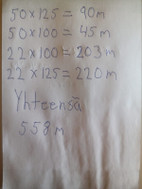 50x125 = 90m
50x100 = 45m
22x100 = 203m
22x125 = 220m
Yhteensä
558m